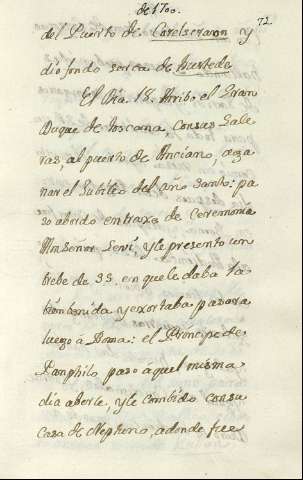 de 1700.
72
del Puerto de Carelseroon y
dio fondo serca de
El Dia 18. Arribo el Gran
Duque de Toscana, con sus Gale
ras, al puerto de Anciano, a ga
nar el Jubileo del año Santo: pa
so abordo en traxe de Ceremonia
Monseñor Servi, y le presento un
brebe de SS. en que le daba la
bienbenida y exortaba pasara
luego à Roma: el Principe de
Pamphilo paso à quel misma
dia aberle, y le combidó con su
Casa de Nephuno, a donde fue